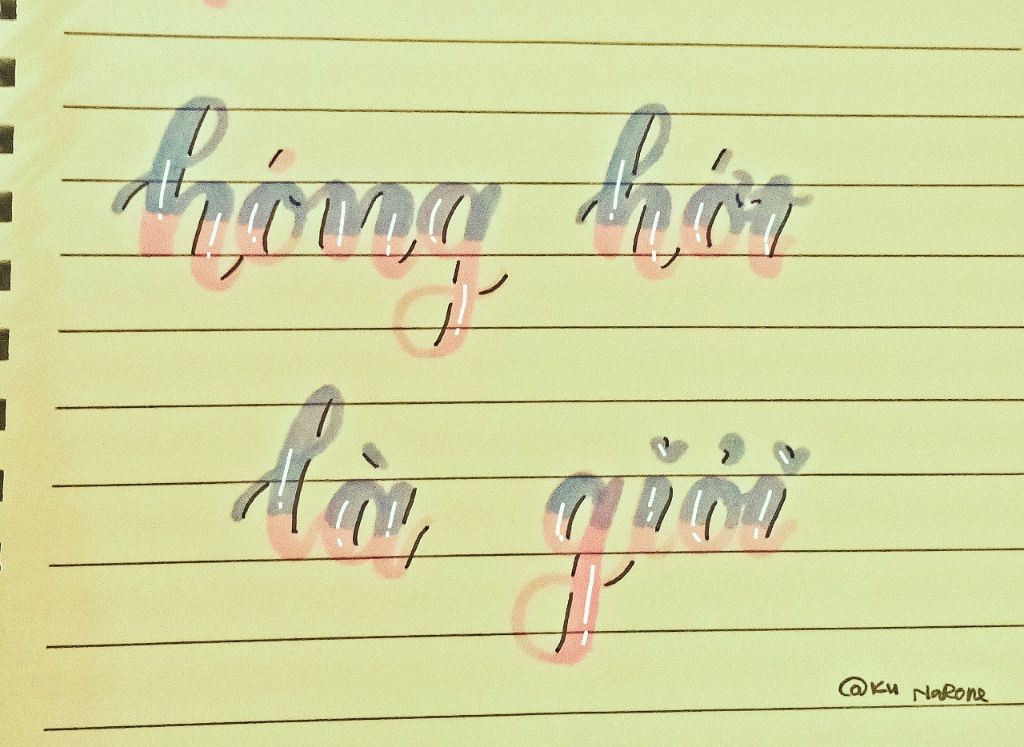 hóng hớt
là giỏi
@Ku NaRone